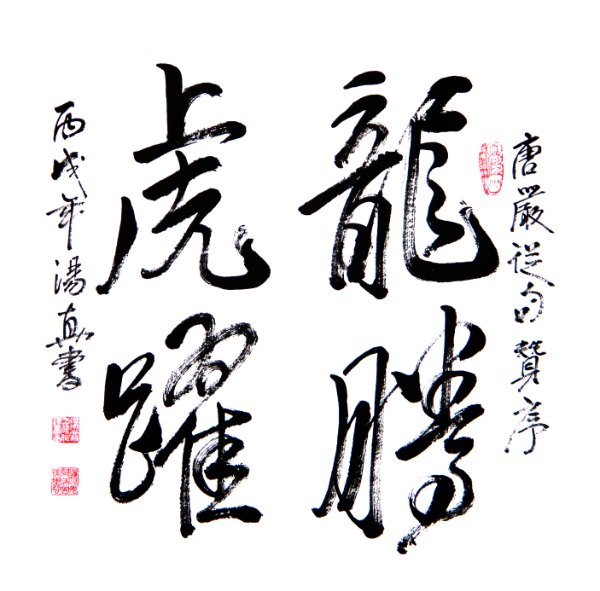 唐嚴從句贊序
龍騰
虎躍
丙戌年湯真書